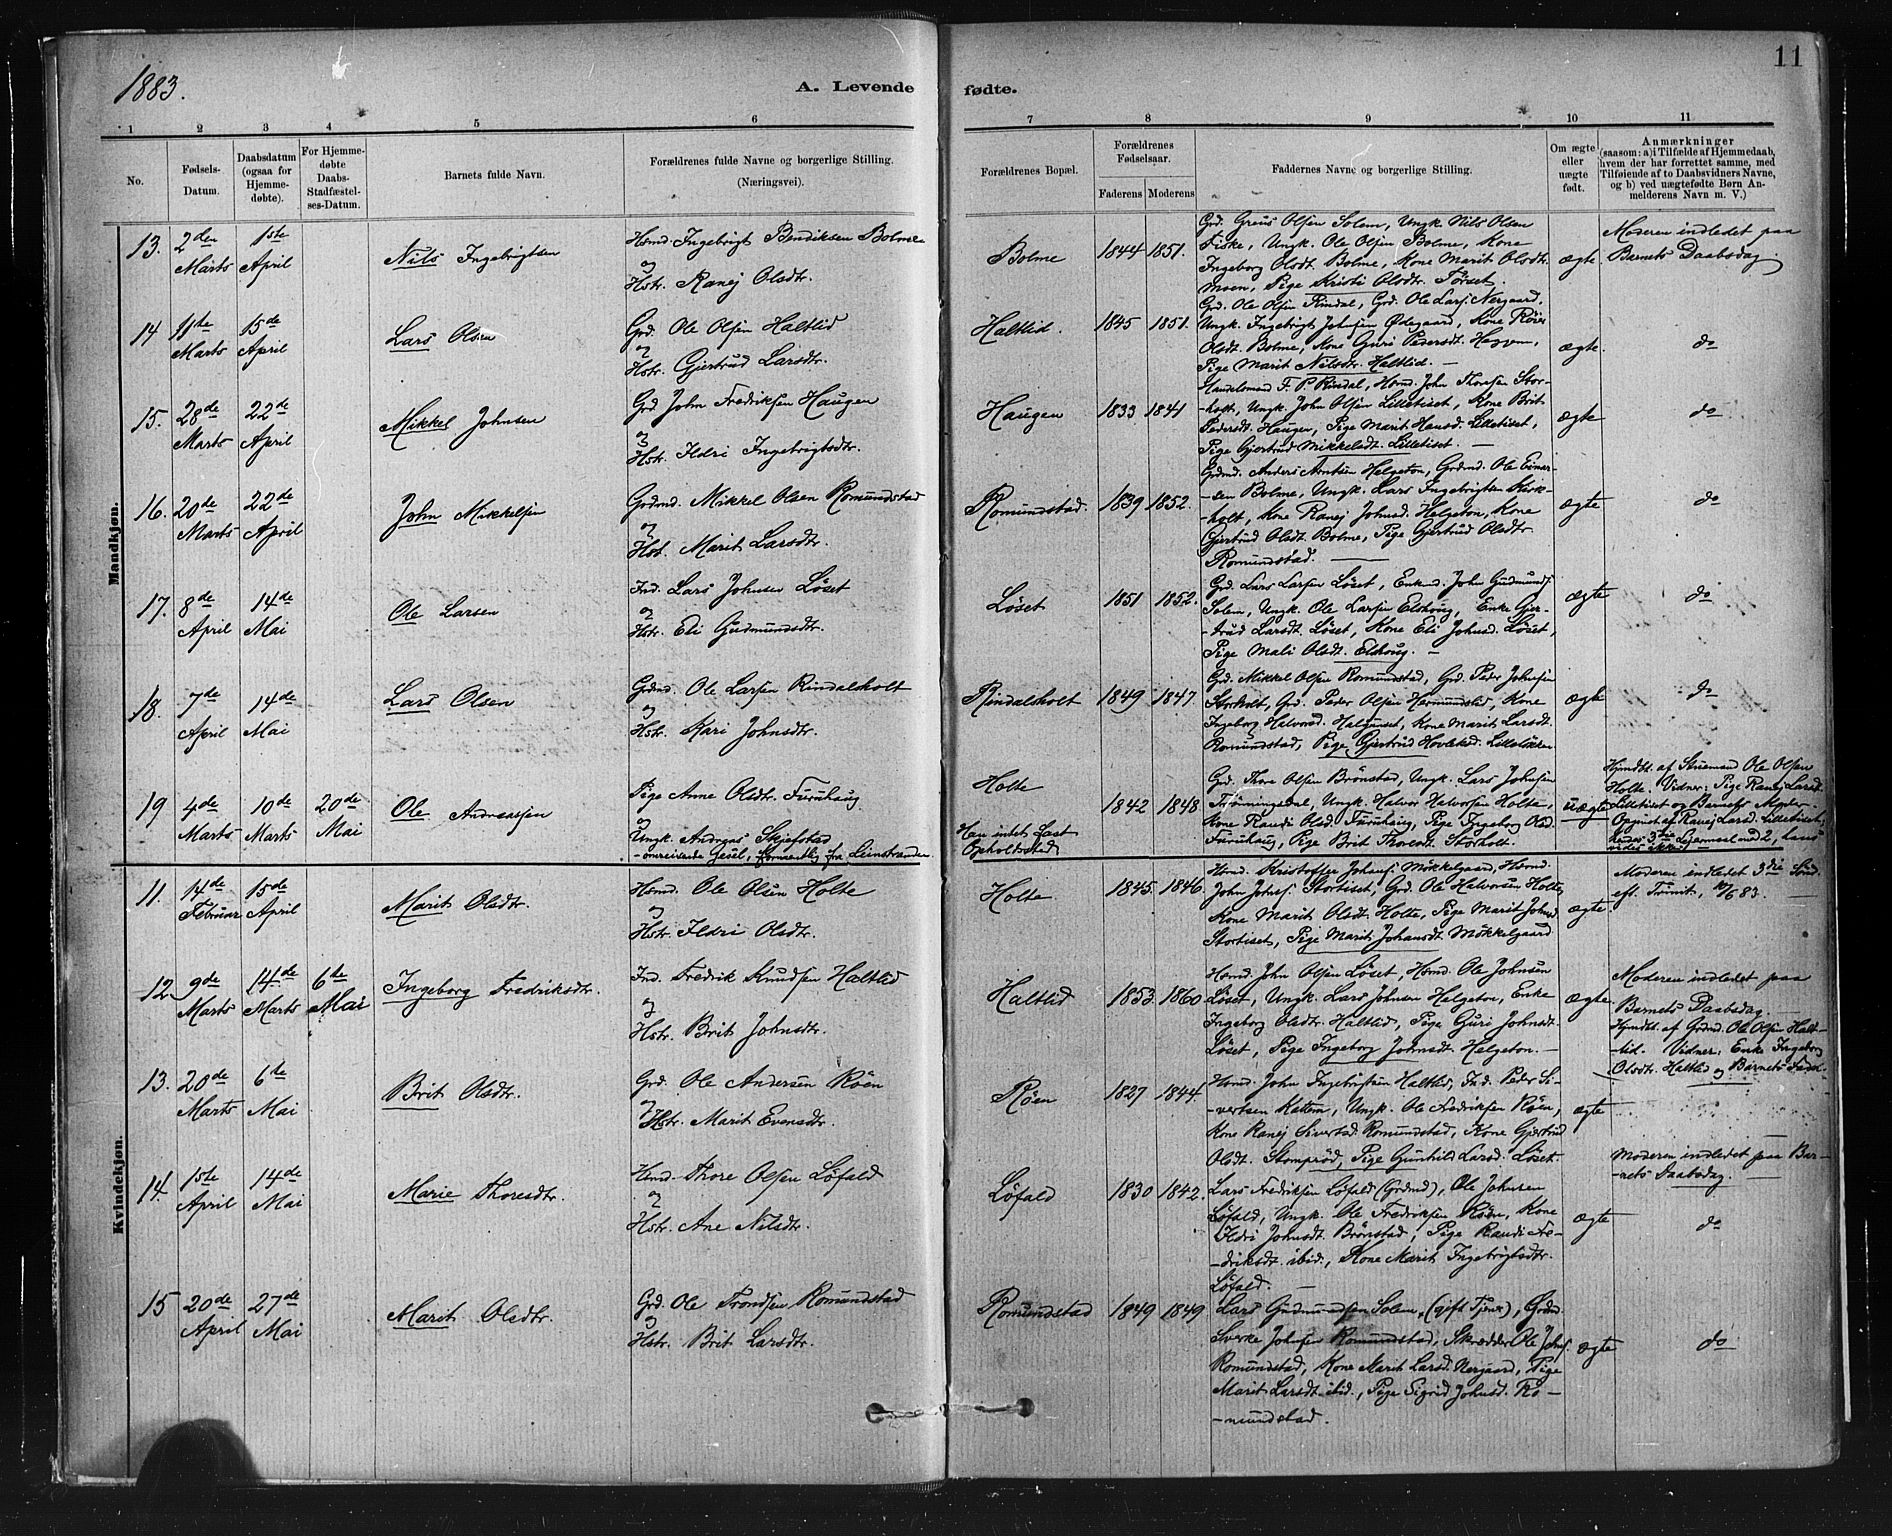 1883.
A. Levende fødte.
11
1 2 3 4 5 6 7 8 9 10 11
No.
Fødsels-Datum.
Daabsdatum (ogsaa for Hjemmedøbte).
For Hjemmedøbte Daabs-Stadfæstelses-Datum.
Barnets fulde Navn.
Forældrenes fulde Navne og borgerlige Stilling.
(Næringsvei).
Forældrenes Bopæl.
Forældrenes Fødselsaar.
Faderens Moderens
Faddernes Navne og borgerlige Stilling.
Om ægte eller uægte født.
Anmærkninger
(saasom: a) i Tilfælde af Hjemmedaab,
hvem der har forrettet samme, med
Tilføiende af to Daabsvidners Navne,
og b) ved uægtefødte Børn Anmelderens Navn m. V.)
Mandkjøn.
13. 2den Marts 1ste April
Nils Ingebrigtsen
Hsmd. Ingebrigt Bendiksen Bolme
og
Hstr. Ranej Olsdtr.
Bolme 1844 1851.
Grd. Greus Olsen Solem, Ungk. Nils Olsen
Fiske, Ungk. Ole Olsen Bolme, Kone
Ingeborg Olsdt. Bolme, Kone Marit Olsdt.
Moen, Pige Kristi Olsdtr. Tørset.
ægte
Moderen indledet paa
Barnets Daabsdag
14 11te Marts 15de April
Lars Olsen
Grd. Ole Olsen Haltlid
og
Hstr. Gjertrud Larsdtr.
Haltlid. 1845 1851.
Grd. Ole Olsen Rindal, Grd. Ole Lars. Nergaard,
Ungk. Ingebrigt Johnsen Ødegaard, Kone
Olsdt. Bolme, Kone Guri Pedersdt. Heggem,
Pige Marit Nilsdtr. Haltlid.
ægte.
do
15. 28de Marts 22de April
Mikkel Johnsen
Grd John Fredriksen Haugen
og
Hstr. Ildri Ingebrigtsdtr.
Haugen 1833 1841
Handelsmand F. P. Rindal, Hsmd. John Thoresen Stor-
-holt, Ungk. John Olsen Lilletiset, Kone Brit
Pedersdt. Haugen, Pige Marit Hansd. Lilletiset,
Pige Gjertrud Mikkelsdt. Lilletiset. —
ægte
do
16. 20de Marts 22de April
John Mikkelsen
Grdmd. Mikkel Olsen Romundstad
og
Hst. Marit Larsdtr.
Romundstad. 1839 1852.
Grdmd. Anders Arntsen Helgeton, Grdmd. Ole Einar-
-sen Bolme, Ungk. Lars Ingebrigtsen Kirk-
-holt, Kone Ranej Johnsd. Helgeton, Kone
Gjertrud Olsdt. Bolme, Pige Gjertrud Olsdtr.
Romundstad.
ægte
do
17. 8de April 14de Mai
Ole Larsen
Ind. Lars Johnsen Løset
og
Hstr. Eli Gudmundsdtr.
Løset 1851 1852.
Grd. Lars Larsen Løset, Enkmd. John Gudmunds.
Solem, Ungk. Ole Larsen Elshoug, Enke Gjer-
-trud Larsdt. Løset, Kone Eli Johnsd. Løset,
Pige Mali Olsdt. Elshoug. —
ægte
do
18. 7de April 14de Mai
Lars Olsen
Grdmd. Ole Larsen Rindalsholt
og
Hstr. Kari Johnsdtr.
Rindalsholt 1849 1847.
Grd. Mikkel Olsen Romundstad, Grd. Peder Johnsen
Storholt, Grd. Peder Olsen Hermundslid, Kone
Ingeborg Halvorsd. Halgunset, Kone Marit Larsdt.
Romundstad, Pige Gjertrud Lilleløkken
ægte
do
19 4de Marts 10de Marts 20de Mai
Ole Andreassen
Pige Anne Olsdtr. Furuhaug
og
Ungk. Andreas Skjefstad
-omreisende Gesel, formentlig fra Leinstranden
Holte
Har intet Fast
Opholdssted
1842 1848
Grd. Thore Olsen Brønstad, Ungk. Lars Johnsen
Trønningsdal, Ungk. Halvor Halvorsen Holte,
Kone Randi Olsd. Furuhaug, Pige Ingeborg Olsd.
Furuhaug, Pige Brit Thoresdt. Storholt.
uægte
Hjmdbt. af Snemand Ole Olsen
Holte. Vidner: Pige Ranej Larsd.
Lilletiset og Barnets Moder.
Opgivet af Ranej Larsd. Lilletiset,
hendes 3die Lejermaal med 2, hans
vides ikke
Kvindekjøn.
11. 14de Februar 15de April
Marit Olsdtr.
Hsmd. Ole Olsen Holte
og
Hstr. Ildri Olsdtr.
Holte 1845. 1846.
Hsmd. Kristoffer Johans. Møkkelgaard, Hsmd.
John Johns. Stortiset, Grd. Ole Halvorsen Holte,
Kone Marit Olsdt. Holte, Pige Marit Johnsd.
Stortiset, Pige Marit Johansdt. Møkkelgaard
ægte
Moderen indledet 3die Sønd.
eft. Trinit. 10/6 83. —
12. 9de Marts 14de Marts 6te Mai
Ingeborg Fredriksdtr.
Ind. Fredrik Knudsen Haltlid
og
Hstr. Brit Johnsdtr.
Haltlid 1853. 1860
Hsmd. John Olsen Løset, Hsmd. Ole Johnsen
Løset, Ungk. Lars Johnsen Helgeton, Enke
Ingeborg Olsdtr. Haltlid, Pige Guri Johnsdt.
Løset, Pige Ingeborg Johnsdt. Helgeton. —
ægte.
Moderen indledet paa
Barnets Daabsdag.
Hjmdbt. af Grdmd. Ole Olsen Halt-
-lid. Vidner: Enke Ingeborg
Olsdtr. Haltlid og Barnets Fader.
13. 20de Marts 6te Mai
Brit Olsdtr.
Grd. Ole Andersen Røen
og
Hstr. Marit Evensdtr.
Røen 1827 1844.
Hsmd. John Ingebrigtsen Haltlid, Ind. Peder Si-
-vertsen Kattem, Ungk. Ole Fredriksen Røen,
Kone Ranej Sivertsd. Romundstad, Kone Gjertrud
Olsdt. Stomprød, Pige Gunhild Larsd. Løset.
ægte
Moderen indledet paa Bar-
-nets Daabsdag. —
14. 1ste April 14de Mai
Marie Thoresdtr.
Hsmd. Thore Olsen Løfald
og
Hstr. Ane Nilsdtr.
Løfald 1830 1842.
Lars Fredriksen Løfald (Grdmd), Ole Johnsen
Løfald, Ungk. Ole Fredriksen Røen, Kone
Ildri Johnsdt. Brønstad, Pige Randi Fre-
-driksdt. ibid., Kone Marit Ingebrigtsdtr.
Løfald. —
ægte
do
15 20de April 27de Mai
Marit Olsdtr.
Grd. Ole Trondsen Romundstad
og
Hstr. Brit Larsdtr.
Romundstad 1849 1849
Lars Gudmundsen Solem, (gift Tjener), Grdmd.
Sverke Johnsen Romundstad, Skrædder Ole Johns.
Romundstad, Kone Marit Larsd. Nergaard, Pige
Marit Larsdt. ibid., Pige Sigrid Johnsd. Ro-
-mundstad.
ægte
do